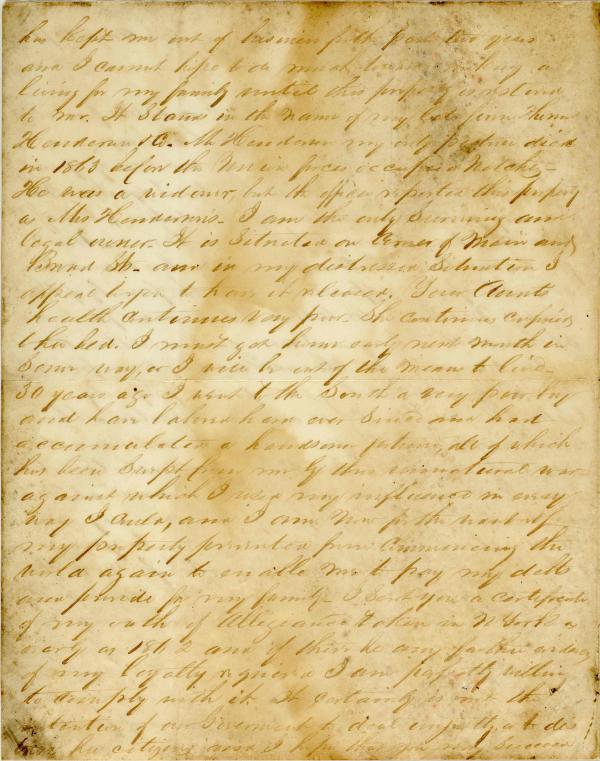 has kept me out of business for the past two years
and I cannot hope to do much towards making a
living for my family until this property is restored
to me. It stands in the name of my late firm Thomas
Henderson & Co. Mr Henderson my only partner died
in 1863 before the Union forces occupied Natchez
He was a widower, but the officer reported this property
as Mrs Henderson's. I am the only surviving and
legal owner. It is situated on corner of Main and
Pearl St. and in my distressed situation I
appeal to you to have it released. Your Aunts
health continues very poor. She continues confined
to her bed. I must get home early next month in
some way, or I will be out of the means to live
30 years ago I went to the South a very poor boy
and have labored hard ever since and had
accumulated a handsome fortune, all of which
has been swept from me by this unnatural war
against which I used my influence in every
way I could, and I am now for the want of
my property prevented from commencing the
world again to enable me to pay my debts
and provide for my family. I sent you a certificate
of my oath of Allegiance taken in N York as
early as 1862 and if there be any further evidence
of my loyalty required I am perfectly willing
to comply with it. It certainly is not the
intention of our Government to deal
its citizens and I hope that you may succeed